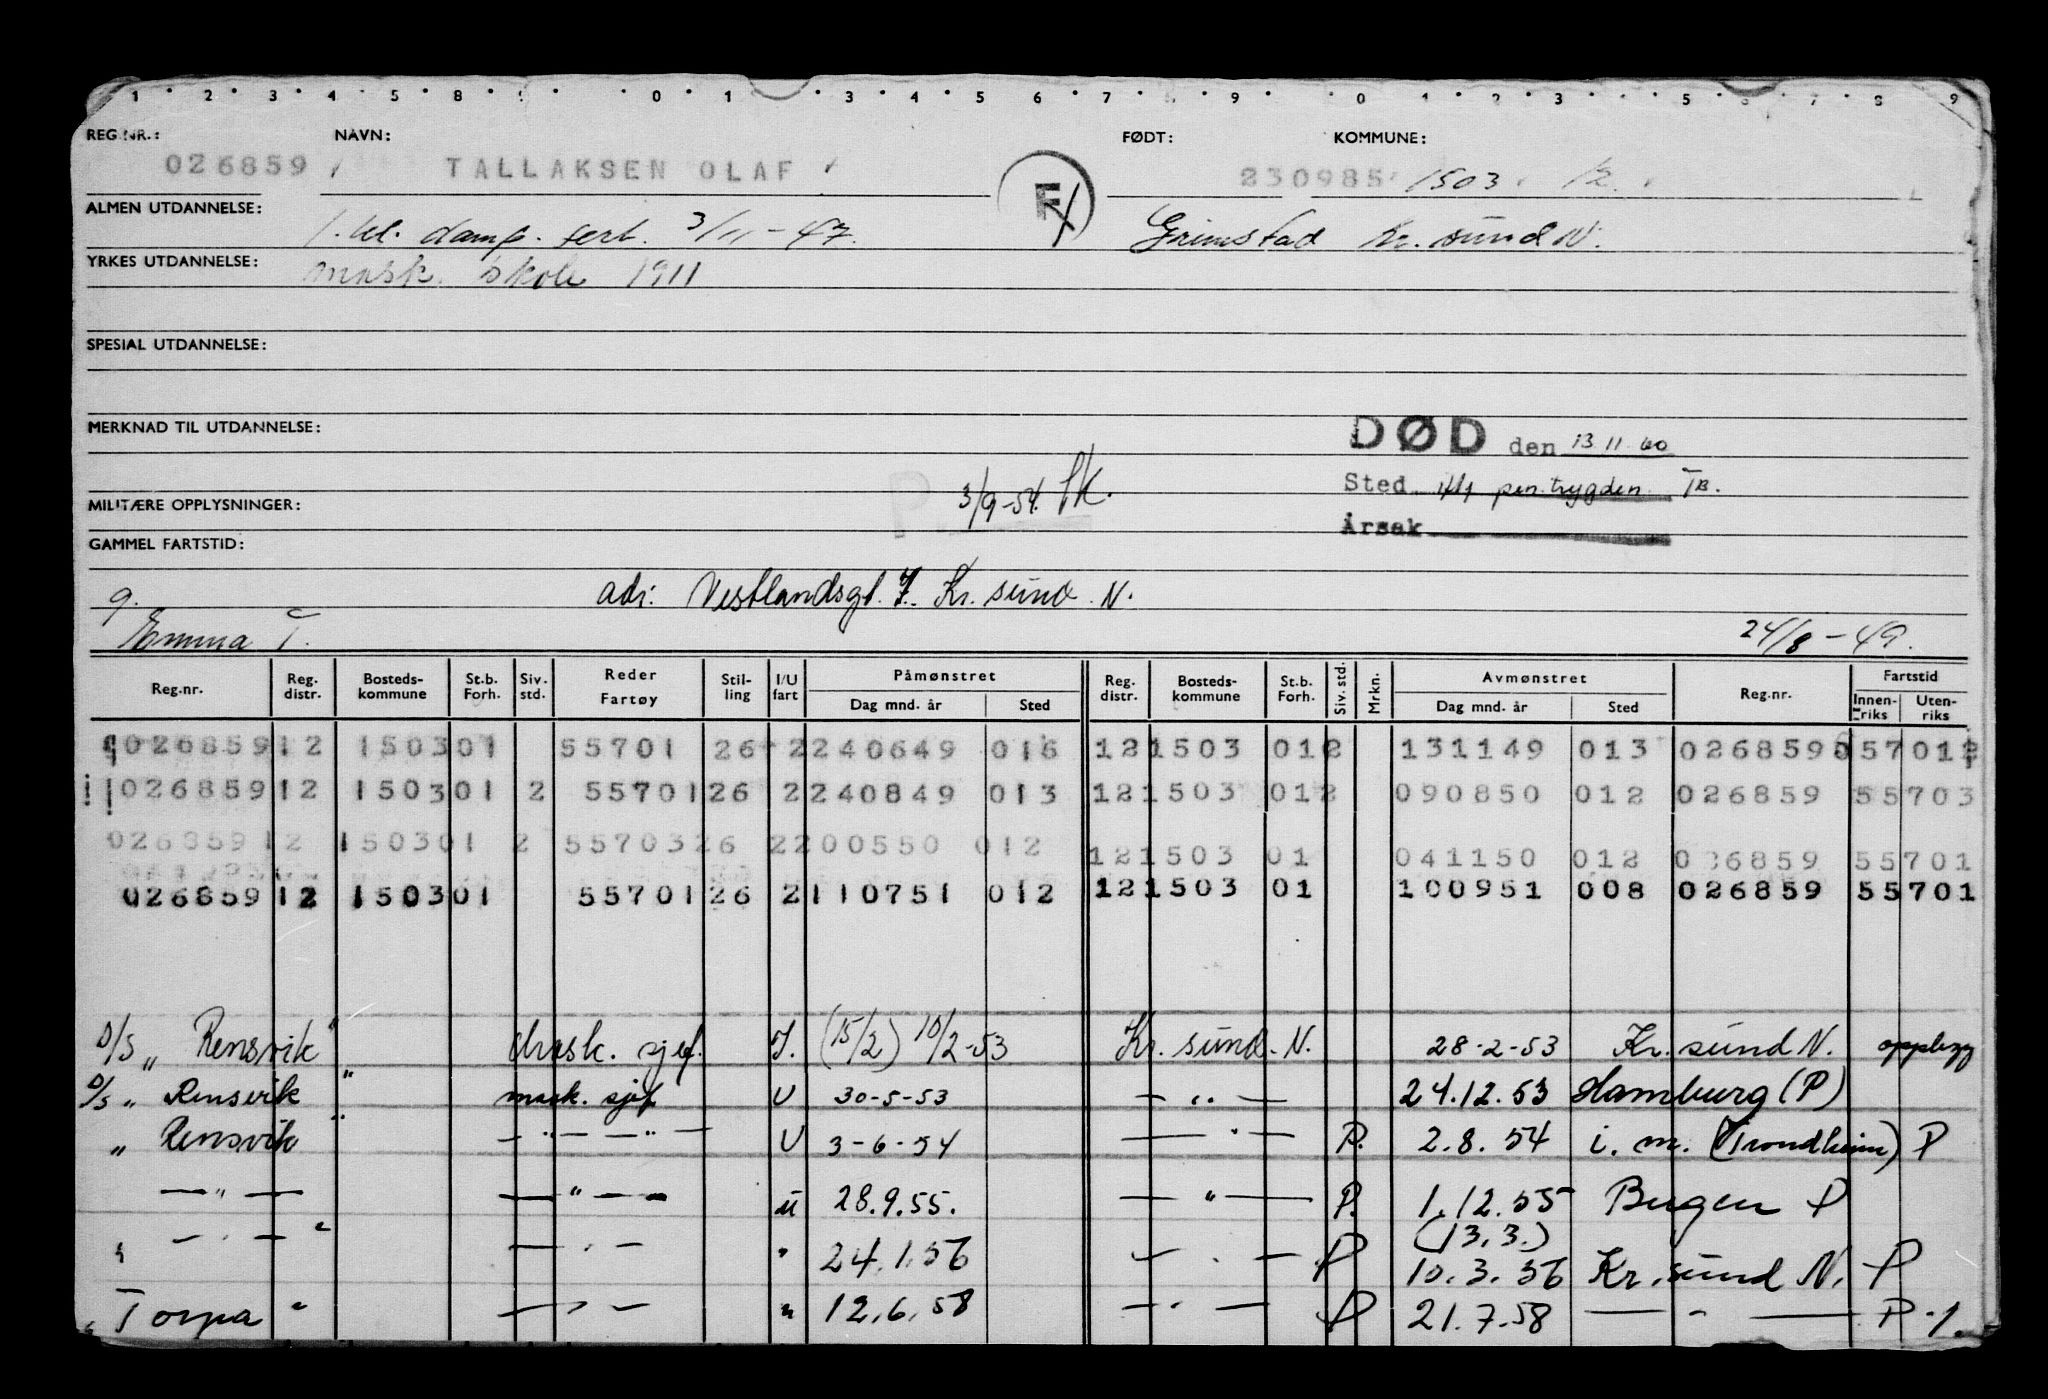 REG.NR.: NAVN: FØDT: KOMMUNE:
026859 TALLAKSEN OLAF F 230985 1503
ALMEN UTDANNELSE: 1. kl. damp. sert. 3/11-47. Grimstad Kr. sund N.
YRKES UTDANNELSE: mask. skole 1911
SPESIAL UTDANNELSE:
MERKNAD TIL UTDANNELSE:
DØD den 13 11 60
Sted iflg pen.trygden TB.
MILITÆRE OPPLYSNINGER: P. 3/9-54.
Årsak
GAMMEL FARTSTID:
g. adr: Vestlandsgt. Kr. sund N.
Emma T. 24/8-49.
Reg.nr. Reg. distr. Bosteds-kommune St.b. Forh. Siv. std. Reder Fartøy Stil-ling I/U fart Påmønstret Dag mnd. år Sted Reg. distr. Bosteds-kommune St.b. Forh. Siv. std. Mrkn. Avmønstret Dag mnd. år Sted Reg.nr. Fartstid Innen-riks Uten-riks
026859 12 1503 01 55701 26 2 240649 016 12 1503 01 2 131149 013 026859 57012
026859 12 1503 01 2 55701 26 2 240849 013 12 1503 01 2 090850 012 026859 55703
026859 12 1503 01 2 55703 26 2 200550 012 12 1503 01 041150 012 026859 55701
026859 12 1503 01 55701 26 2 110751 012 12 1503 01 100951 008 026859 55701
D/S „ Rensvik" mask. sjef. (15/2) 10/2-53 Kr. sund. N. 28-2-53 Kr. sund N. opplegg
D/S „ Rensvik " mask. sjef U 30-5-53 — „ — 24.12.53 Hamburg (P)
„ Rensvik " — " — — " — U 3-6-54 — " — P. 2.8.54 i. m. (Trondheim) P
— " — — " — — u 28.9.55. — " — P. 1.12.55 Bergen P
(13.3.)
— " — — " — " 24.1.56 — " — P 10.3.56 Kr. sund N. P
„ Torpa " — " — " 12.6.58 — " — P 21.7.58 — " — P